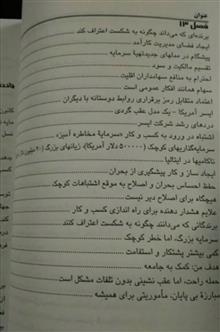 عنوان
فصل ۱۳
برنده‌ای که می‌داند چگونه به شکست اعتراف کند
ایجاد فضای مدیریت کارآمد
پیشگام در مدلهای جدیدتهیهٔ سرمایه
تقسیم مالکیت و سود
احترام به منافع سهامداران اقلیت
سهام همانند افکار عمومی است
اعتماد متقابل رمز برقراری روابط دوستانه با دیگران
ایسر آمریکا - یک مدل عقب گردی
دردهای رشد شرکت ایسر
اشتباه در ورود به کسب و کار «سرمایه مخاطره آمیز»
سرمایه‌گذاریهای کوچک (۵۰۰۰۰۰ دلار آمریکا) زیانهای بزرگ (۲۰ میلیون
ناکامیها در ایتالیا
ایجاد ساز و کار پیشگیری از بحران
حفظ احساس بحران و اصلاح به موقع اشتباهات کوچک
هیچگاه برای اصلاح دیر نیست
علایم هشدار دهنده برای راه اندازی کسب و کار
برندگانی که می‌دانند چگونه به شکست اعتراف کنند
سرمایه بزرگ، اما خطر کوچک
کمی بیشتر پشتکار و استقامت
هدف من: کمک به جامعه
حمله راحت، اما عقب نشینی بدون تلفات مشکل است
مبارزهٔ بی پایان، مأموریتی برای همیشه